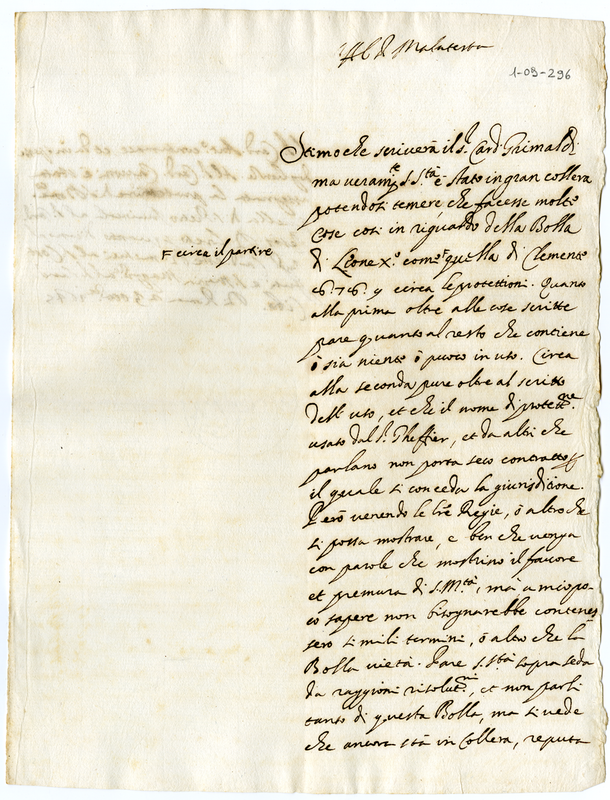 Al S.r Malatesta
1-09-296
Stimo che scriverà il S.r Card. Grimaldi
ma veram.te S. S.tà è stato in gran collera
potendosi temere che facesse molte
cose così in riguardo della Bolla
= circa il partire
di Leone X.o come quella di Clemente
circa le protettioni. Quanto
alla prima oltre alle cose scritte
pare quanto al resto che contiene
ò sia niente ò puoco in uso. Circa
alla seconda pure oltre al scritto
dell'uso, et che il nome di protett.ne
usato dal S.r Gheffier, et da altri che
parlano non porta seco contratto
il quale si conceda la giurisditione.
Però venendo le lre Regie, ò altro che
si possa mostrare, e ben che venga
con parole che mostrino il favore
et premura di S. M.tà, mà à mio po-
co sapere non bisognarebbe contenes-
sero simili termini, ò altro che la
Bolla vieta. Pare S. S.tà sopraseda
da raggioni risolut.ni, et non parli
tanto di questa Bolla, ma si vede
che ancora stà in Collera, reputa